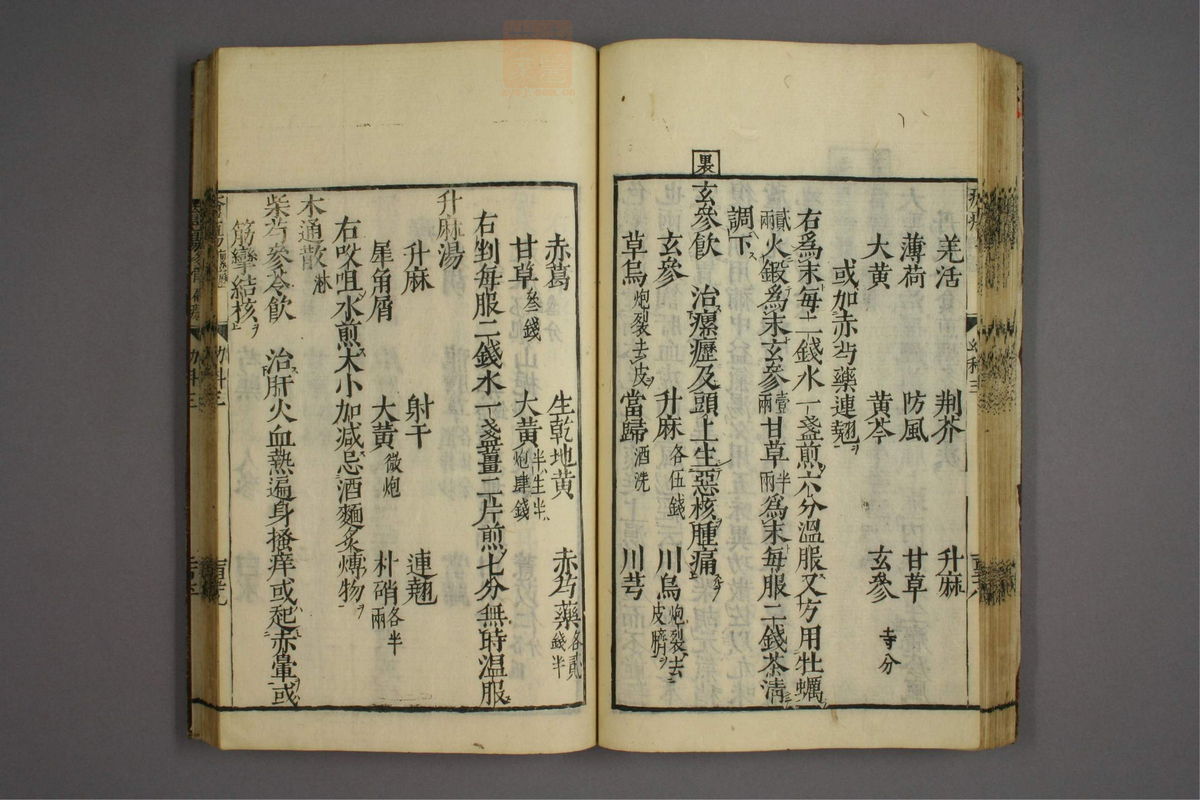 羌活 荆芥 升麻
薄荷 防風 甘草
大黄 黄芩 玄參 寺分
或如赤芍藥連翹
右爲末毎二錢水一盞煎六分溫服又方用牡蠣
貳兩火鍛爲末玄參壹兩甘草半兩爲末毎服二錢茶清
調下
裏
玄參飲 治瘰癧及頭上生惡核腫痛
玄參 升麻各伍錢 川烏炮裂去皮臍
草烏炮裂去皮 當歸酒洗 川芎
赤葛 生乾地黄 赤芍藥各貳錢半
甘草叁錢 大黄半生半炮肆錢
右剉毎服二錢水一盞薑二片煎七分無時温服
升麻湯
升麻 射干 連翹
犀角屑 大黄微炮 朴硝各半兩
右㕮咀水煎大小加减忌酒麵炙煿物
木通散淋
柴芍參苓飲 治肝火血熱遍身搔痒或起赤暈或
筋攣結核